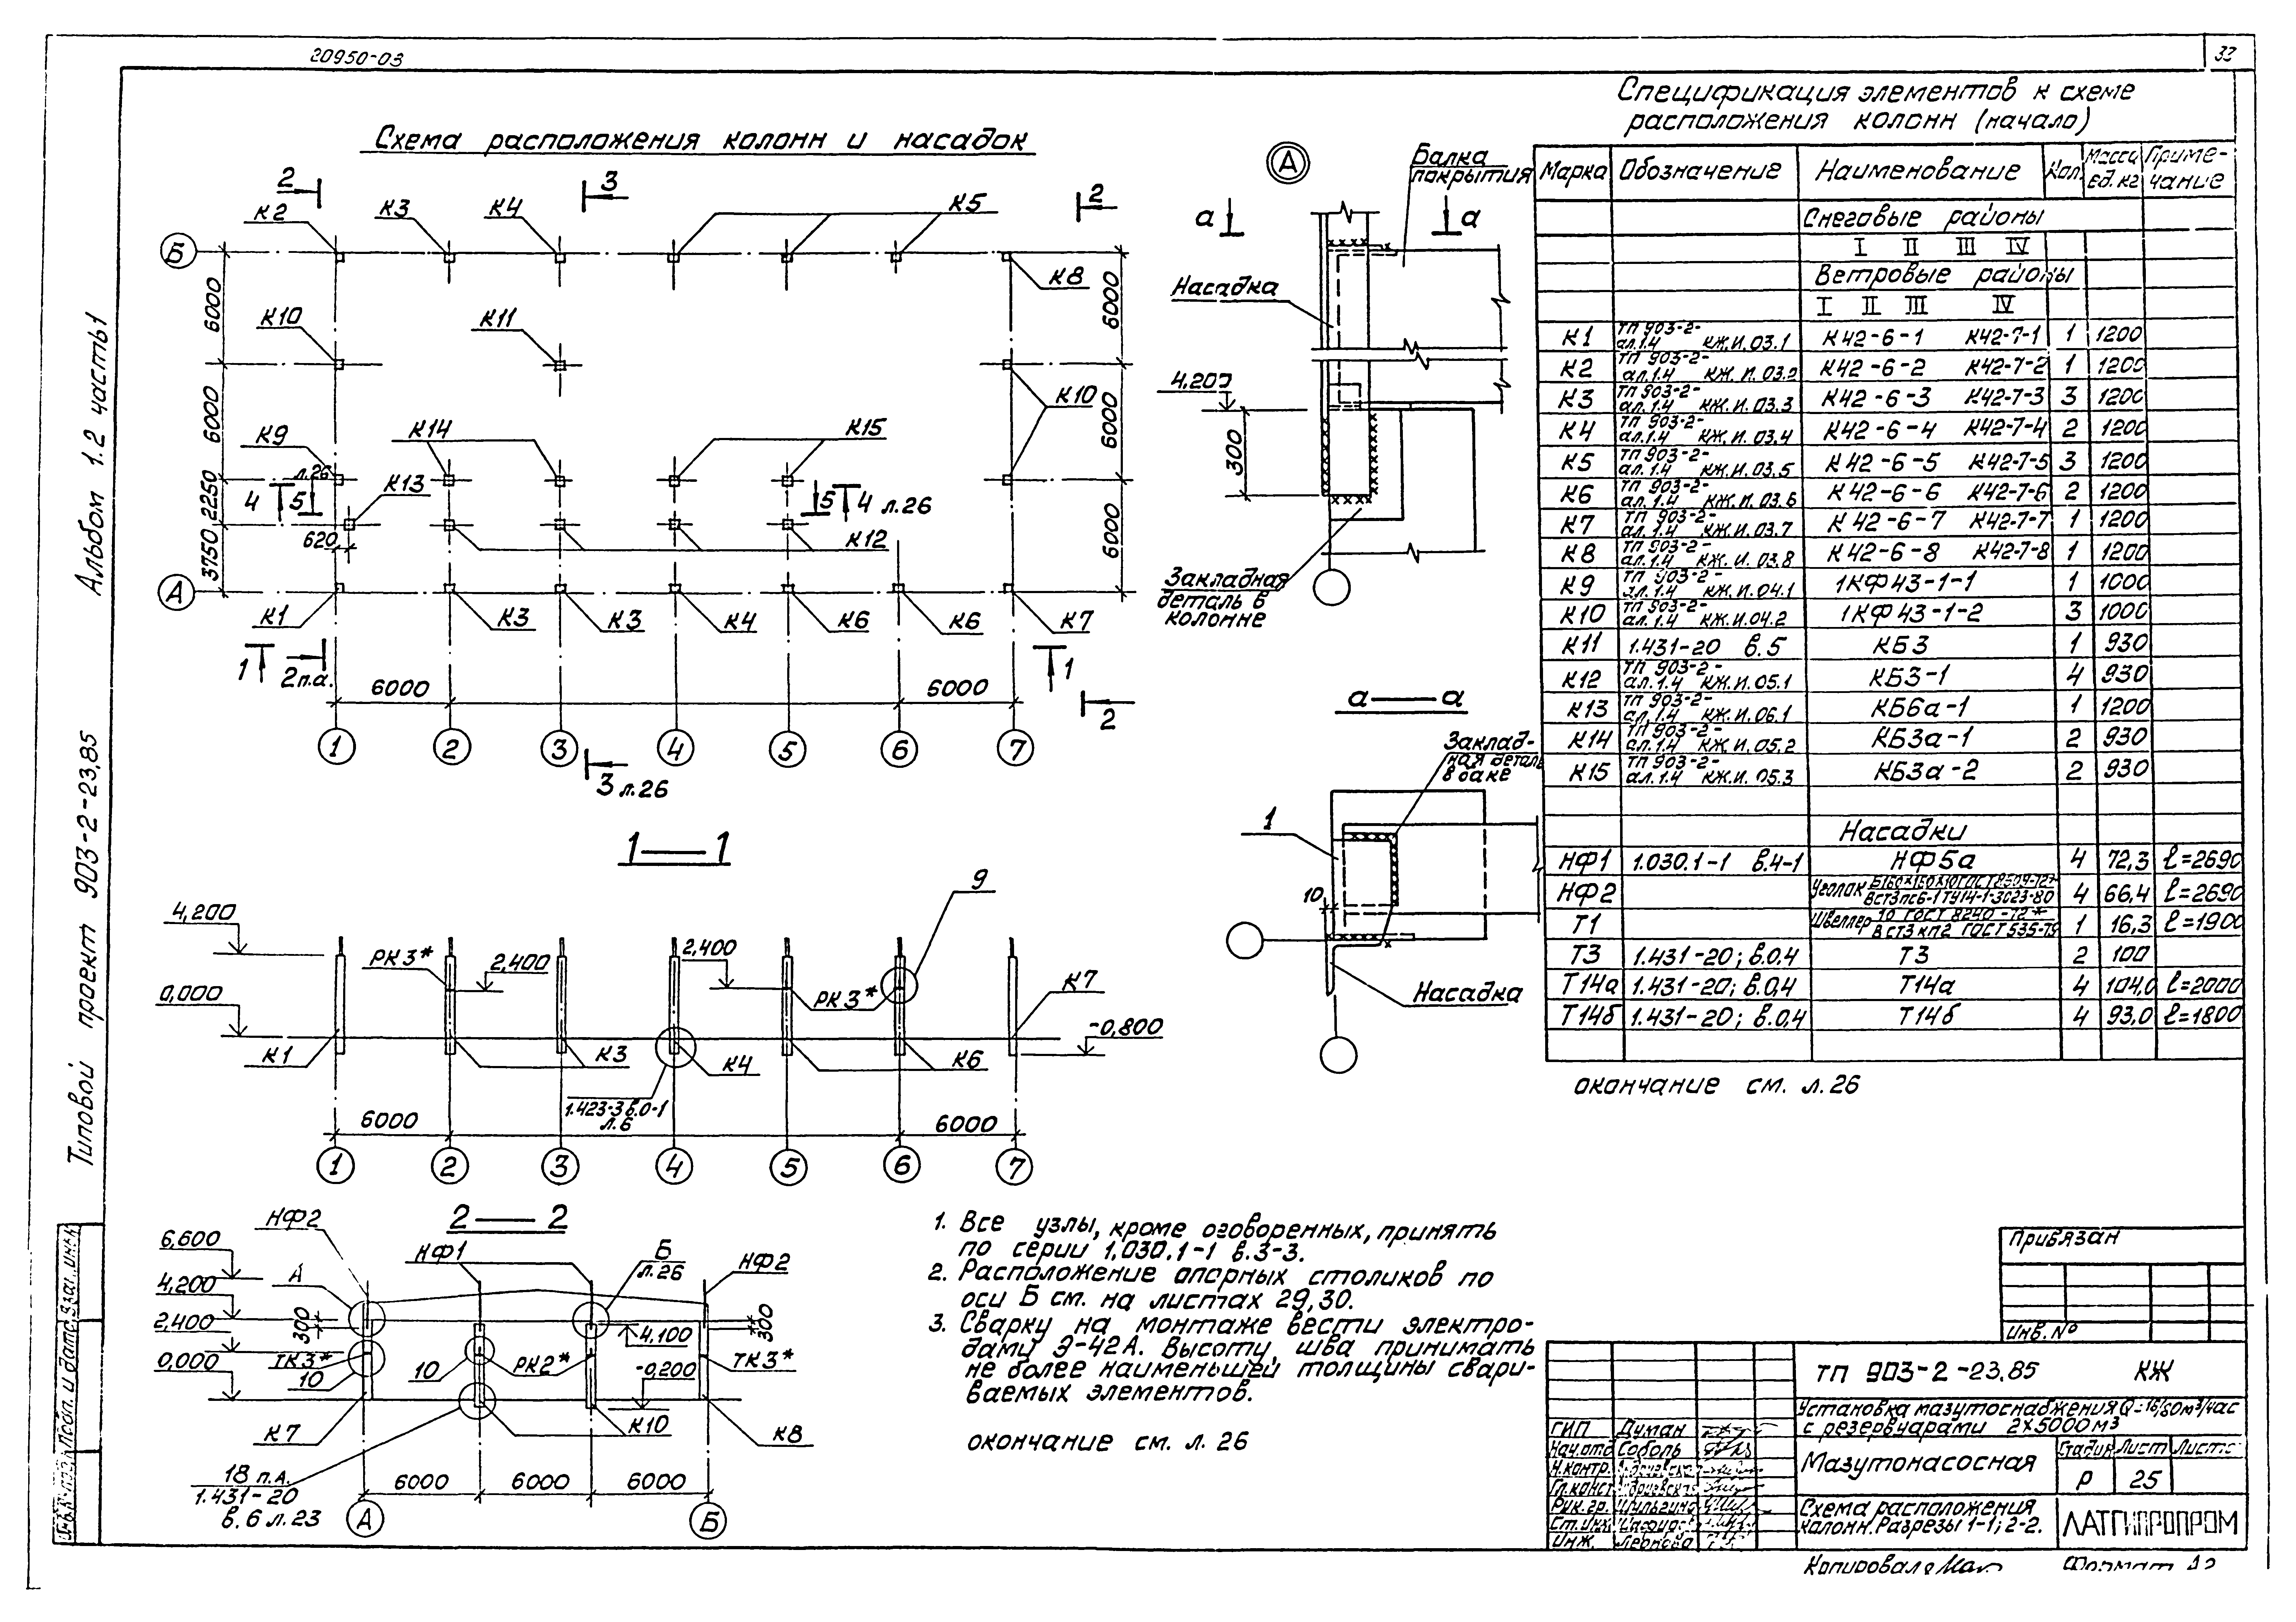 20950-03
33
Альбом 1.2 часть1
Типовой проект 903-2-23.85
Схема расположения колонн и насадок
2
3
2
К2
К3
К4
К5
Б
К8
6000
6000
К10
К11
К10
6000
6000
К9
К14
К15
л.26
К13
4
5
5
4 л.26
2250
3750
620
К12
6000
А
К1
К3
К3
К4
К6
К6
К7
1
2п.а.
1
6000
6000
2
1
2
3
4
5
6
7
3 л.26
1 — 1
9
4,200
РК3*
2,400
2,400
РК3*
К7
0,000
-0,800
К1
К3
К4
К6
1.423-3 в.0-1
л.6
6000
6000
1
2
3
4
5
6
7
2 — 2
НФ2
НФ1
Б
л.26
НФ2
6,600
4,200
А
2,400
300
4,100
300
ТК3*
0,000
10
10
РК2*
-0,200
ТК3*
К7
К10
К8
18 п.а.
1.431-20
в.6 л.23
6000
6000
6000
А
Б
А
Балка
покрытия
а
а
Насадка
4,200
300
Закладная
деталь в
колонне
а — а
Заклад-
ная деталь
в балке
1
10
Насадка
1. Все узлы, кроме оговоренных, принять
по серии 1.030.1-1 в.3-3.
2. Расположение опорных столиков по
оси Б см. на листах 29,30.
3. Сварку на монтаже вести электро-
дами Э-42А. Высоту шва принимать
не более наименьшей толщины свари-
ваемых элементов.
окончание см. л. 26
Спецификация элементов к схеме
расположения колонн (начало)
Марка Обозначение Наименование Кол. Масса ед. кг Приме-чание
Снеговые районы
I II III IV
Ветровые районы
I II III IV
К1 ТП 903-2- ал.1.4 КЖ.И.03.1 К42-6-1 К42-7-1 1 1200
К2 ТП 903-2- ал.1.4 КЖ.И.03.2 К42-6-2 К42-7-2 1 1200
К3 ТП 903-2- ал.1.4 КЖ.И.03.3 К42-6-3 К42-7-3 3 1200
К4 ТП 903-2- ал.1.4 КЖ.И.03.4 К42-6-4 К42-7-4 2 1200
К5 ТП 903-2- ал.1.4 КЖ.И.03.5 К42-6-5 К42-7-5 3 1200
К6 ТП 903-2- ал.1.4 КЖ.И.03.6 К42-6-6 К42-7-6 2 1200
К7 ТП 903-2- ал.1.4 КЖ.И.03.7 К42-6-7 К42-7-7 1 1200
К8 ТП 903-2- ал.1.4 КЖ.И.03.8 К42-6-8 К42-7-8 1 1200
К9 ТП 903-2- ал.1.4 КЖ.И.04.1 1КФ43-1-1 1 1000
К10 ТП 903-2- ал.1.4 КЖ.И.04.2 1КФ43-1-2 3 1000
К11 1.431-20 в.5 КБ3 1 930
К12 ТП 903-2- ал.1.4 КЖ.И.05.1 КБ3-1 4 930
К13 ТП 903-2- ал.1.4 КЖ.И.06.1 КБ6а-1 1 1200
К14 ТП 903-2- ал.1.4 КЖ.И.05.2 КБ3а-1 2 930
К15 ТП 903-2- ал.1.4 КЖ.И.05.3 КБ3а-2 2 930
Насадки
НФ1 1.030.1-1 в.4-1 НФ5а 4 72,3 ℓ=2690
НФ2 Уголок Б160х160х10 ГОСТ 8509-72* ВСт3пс6-1 ТУ14-1-3023-80 4 66,4 ℓ=2690
Т1 Швеллер 10 ГОСТ 8240-72* ВСт3кп2 ГОСТ 535-79 1 16,3 ℓ=1900
Т3 1.431-20; в.0,4 Т3 2 100
Т14а 1.431-20; в.0,4 Т14а 4 104,0 ℓ=2000
Т14б 1.431-20; в.0,4 Т14б 4 93,0 ℓ=1800
окончание см. л.26
Привязан
Инв.№
ТП 903-2-23.85 КЖ
Установка мазутоснабжения Q=16/80м³/час
с резервуарами 2х5000м³
ГИП Думан
Нач.отд Соболь
Н.контр.
Гл.конст
Рук.гр. Шильгина
Ст.инж
Инж. Леонова
Мазутонасосная
Стадия Лист Листов
Р 25
Схема расположения
колонн. Разрезы 1-1; 2-2.
ЛАТГИПРОПРОМ
Копировал
Формат А2